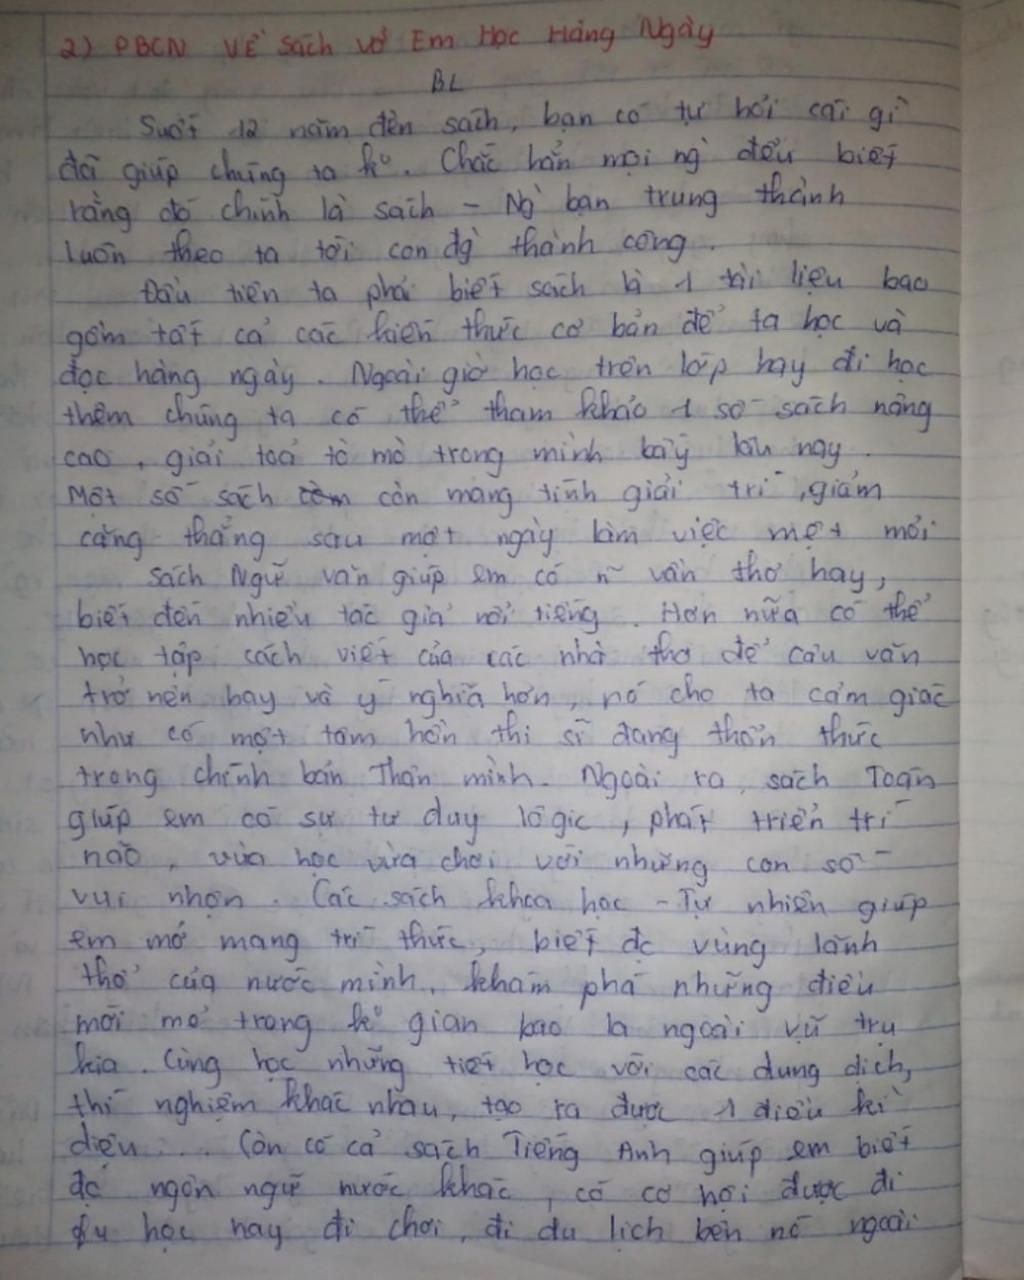 2) PBCN Về sách vở Em Học Hàng Ngày
BL
Suốt 12 năm đèn sách, bạn có tự hỏi cái gì
đã giúp chúng ta ko. Chắc hẳn mọi ng` đều biết
rằng đó chính là sách - Ng` bạn trung thành
luôn theo ta tới con đg` thành công.
Đầu tiên ta phải biết sách là 1 tài liệu bao
gồm tất cả các kiến thức cơ bản để ta học và
đọc hàng ngày. Ngoài giờ học trên lớp hay đi học
thêm chúng ta có thể tham khảo 1 số sách nâng
cao, giải toả tò mò trong mình bấy lâu nay.
Một số sách còn mang tính giải trí, giảm
căng thẳng sau một ngày làm việc mệt mỏi
Sách Ngữ văn giúp em có n~ vần thơ hay,
biết đến nhiều tác giả nổi tiếng. Hơn nữa có thể
học tập cách viết của các nhà thơ để câu văn
trở nên hay và ý nghĩa hơn, nó cho ta cảm giác
như có một tâm hồn thi sĩ đang thổn thức
trong chính bản Thân mình. Ngoài ra, sách Toán
giúp em có sự tư duy lôgic, phát triển trí
não, vừa học vừa chơi với những con số
vui nhộn. Các sách khoa học - Tự nhiên giúp
em mở mang tri thức, biết đc vùng lãnh
thổ của nước mình, khám phá những điều
mới mẻ trong ko gian bao la ngoài vũ trụ
kia. Cùng học những tiết học với các dung dịch,
thí nghiệm khác nhau, tạo ra được 1 điều kì
diệu... Còn có cả sách Tiếng Anh giúp em biết
đc ngôn ngữ nước khác, có cơ hội được đi
du học hay đi chơi, đi du lịch bên nc ngoài